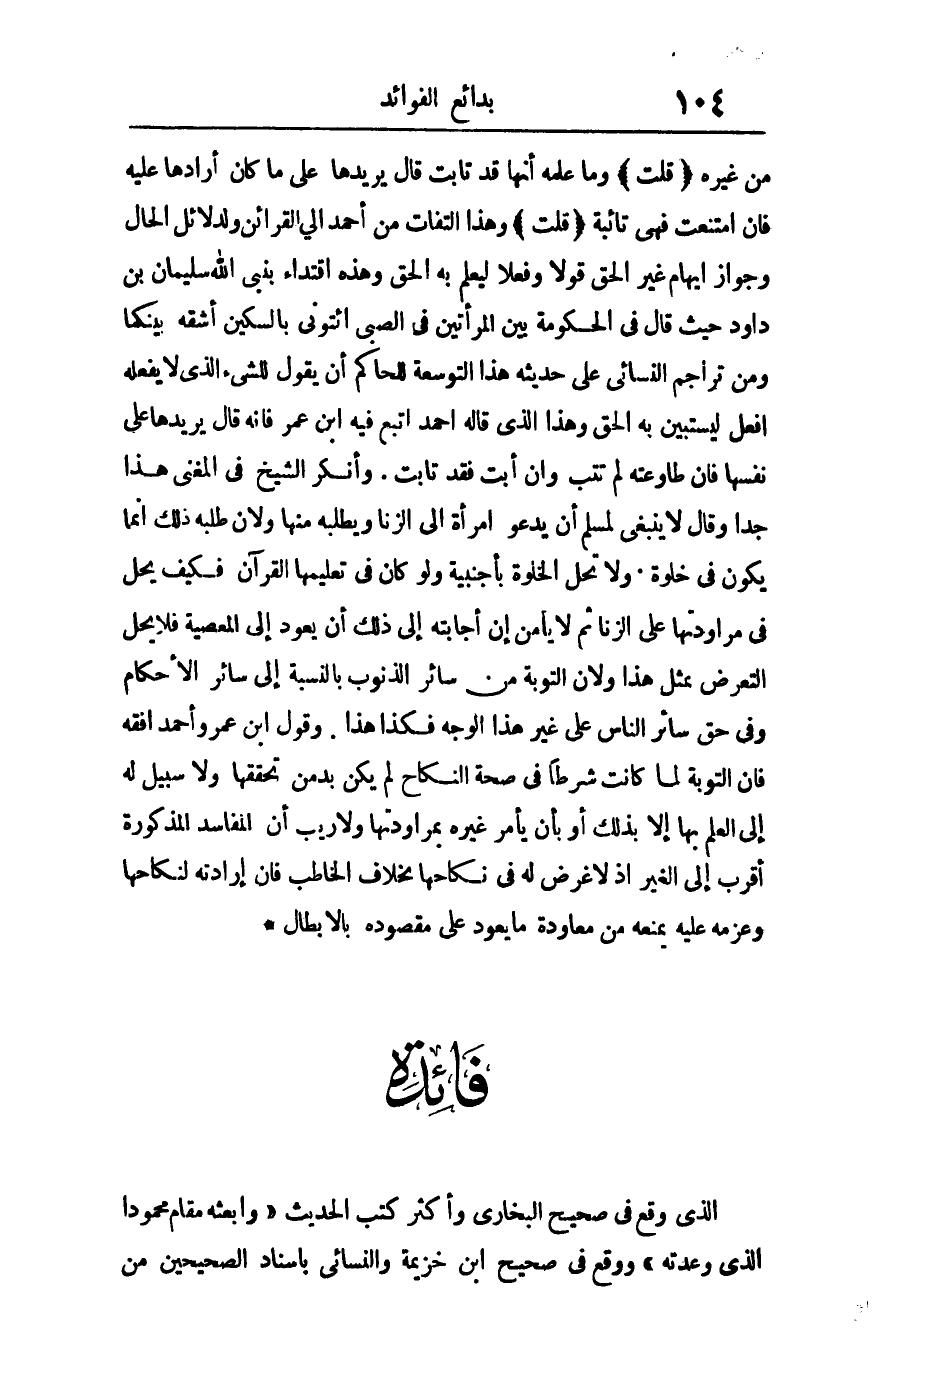 ١٠٤ بدائع الفوائد
من غيره ﴿ قلت ﴾ وما علمه أنها قد تابت قال يريدها على ما كان أرادها عليه
فان امتنعت فهى تائبة ﴿ قلت ﴾ وهذا التفات من أحمد الي القرائن ولدلائل الحال
وجواز ايهام غير الحق قولا وفعلا ليعلم به الحق وهذه اقتداء بنبى الله سليمان بن
داود حيث قال فى الحكومة بين المرأتين فى الصبى ائتونى بالسكين أشقه بينكما
ومن تراجم النسائى على حديثه هذا التوسعة للحاكم أن يقول للشىء الذى لا يفعله
افعل ليستبين به الحق وهذا الذى قاله احمد اتبع فيه ابن عمر فانه قال يريدها على
نفسها فان طاوعته لم تتب وان أبت فقد تابت . وأنكر الشيخ فى المغنى هذا
جدا وقال لا ينبغى لمسلم أن يدعو امرأة الى الزنا ويطلبه منها ولان طلبه ذلك انما
يكون فى خلوة . ولا تحل الخلوة بأجنبية ولو كان فى تعليمها القرآن فكيف يحل
فى مراودتها على الزنا ثم لا يأمن إن أجابته إلى ذلك أن يعود إلى المعصية فلا يحل
التعرض بمثل هذا ولان التوبة من سائر الذنوب بالنسبة إلى سائر الأحكام
وفى حق سائر الناس على غير هذا الوجه فكذا هذا . وقول ابن عمر وأحمد افقه
فان التوبة لما كانت شرطاً فى صحة النكاح لم يكن بد من تحققها ولا سبيل له
إلى العلم بها إلا بذلك أو بأن يأمر غيره بمراودتها ولا ريب أن المفاسد المذكورة
أقرب إلى الغير اذ لا غرض له فى نكاحها بخلاف الخاطب فان إرادته لنكاحها
وعزمه عليه يمنعه من معاودة ما يعود على مقصوده بالابطال *
فَائِدَة
الذى وقع فى صحيح البخارى وأكثر كتب الحديث « وابعثه مقام محمودا
الذى وعدته » ووقع فى صحيح ابن خزيمة والنسائى باسناد الصحيحين من